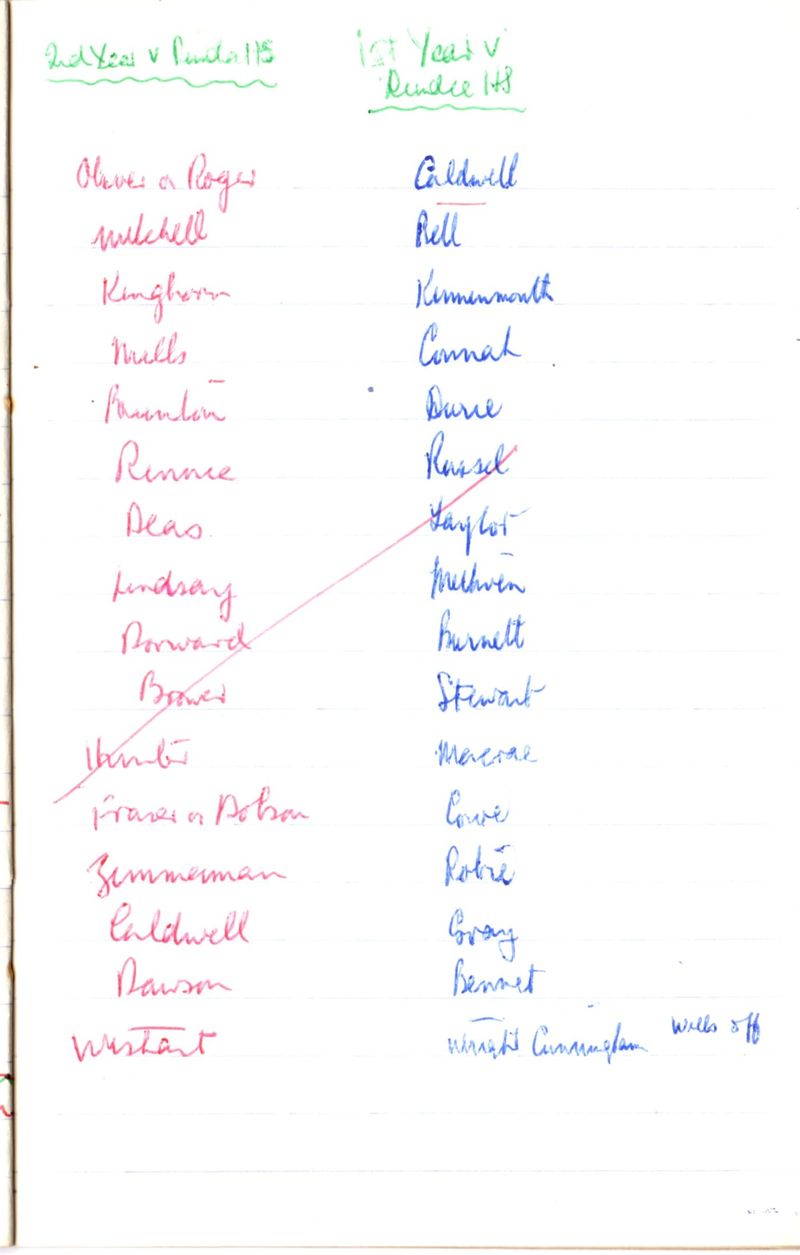 2nd Year v Dundee HS
Oliver or Roger
Mitchell
Kinghorn
Mills
Brunton
Rennie
Deas
Lindsay
Dorward
Brower
Hunter
Fraser or Dobson
Zimmerman
Caldwell
Dawson
Wishart
1st Year v
Dundee HS
Caldwell
Bell
Kinnenmonth
Connah
Durie
Russel
Taylor
Methven
Burnett
Stewart
Macrae
Cowe
Robie
Gray
Bennet
Wright Cunningham Wells off